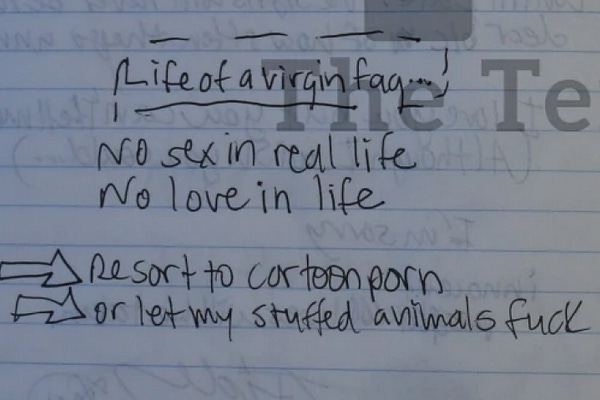 The Te
Life of a virgin fag...
No sex in real life
No love in life
Resort to cartoon porn
or let my stuffed animals fuck